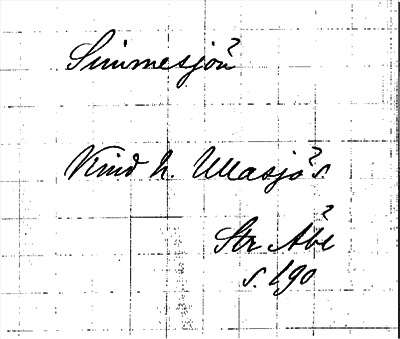 Simmesjön
Kind h. Ullasjö s.
Str Åbe
s. 190